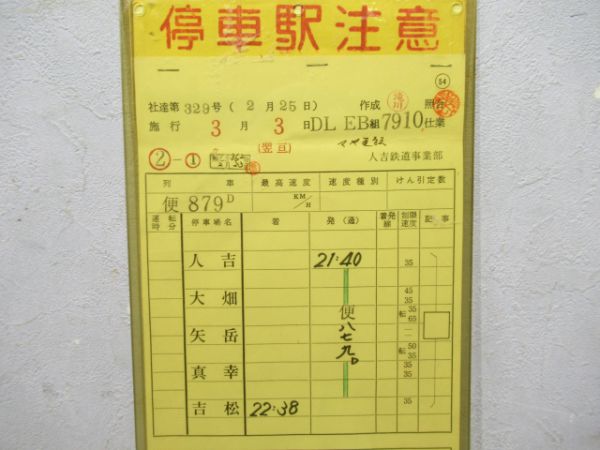 停車駅注意
54
社達第 329号 (2月25日) 作成 照合
施行 3月3日 DL EB組 7910仕業
(翌日)
②-① 人吉鉄道事業部
列車 最高速度 速度種別 けん引定数
便 879D KM/H
運転時分 停車場名 着 発(通) 着発線 制限速度 記事
人吉 21:40 35
大畑 45 35
矢岳 便八七九D 35 転 65
真幸 50 転 35 35
吉松 22:38 35